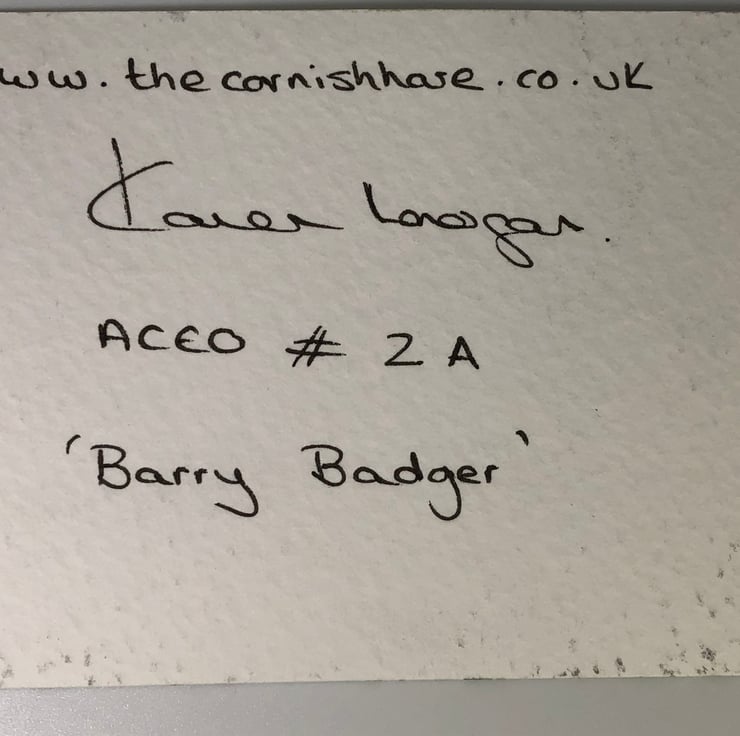 ww.thecornishhare.co.uk
Karen
ACEO # 2A
'Barry Badger'